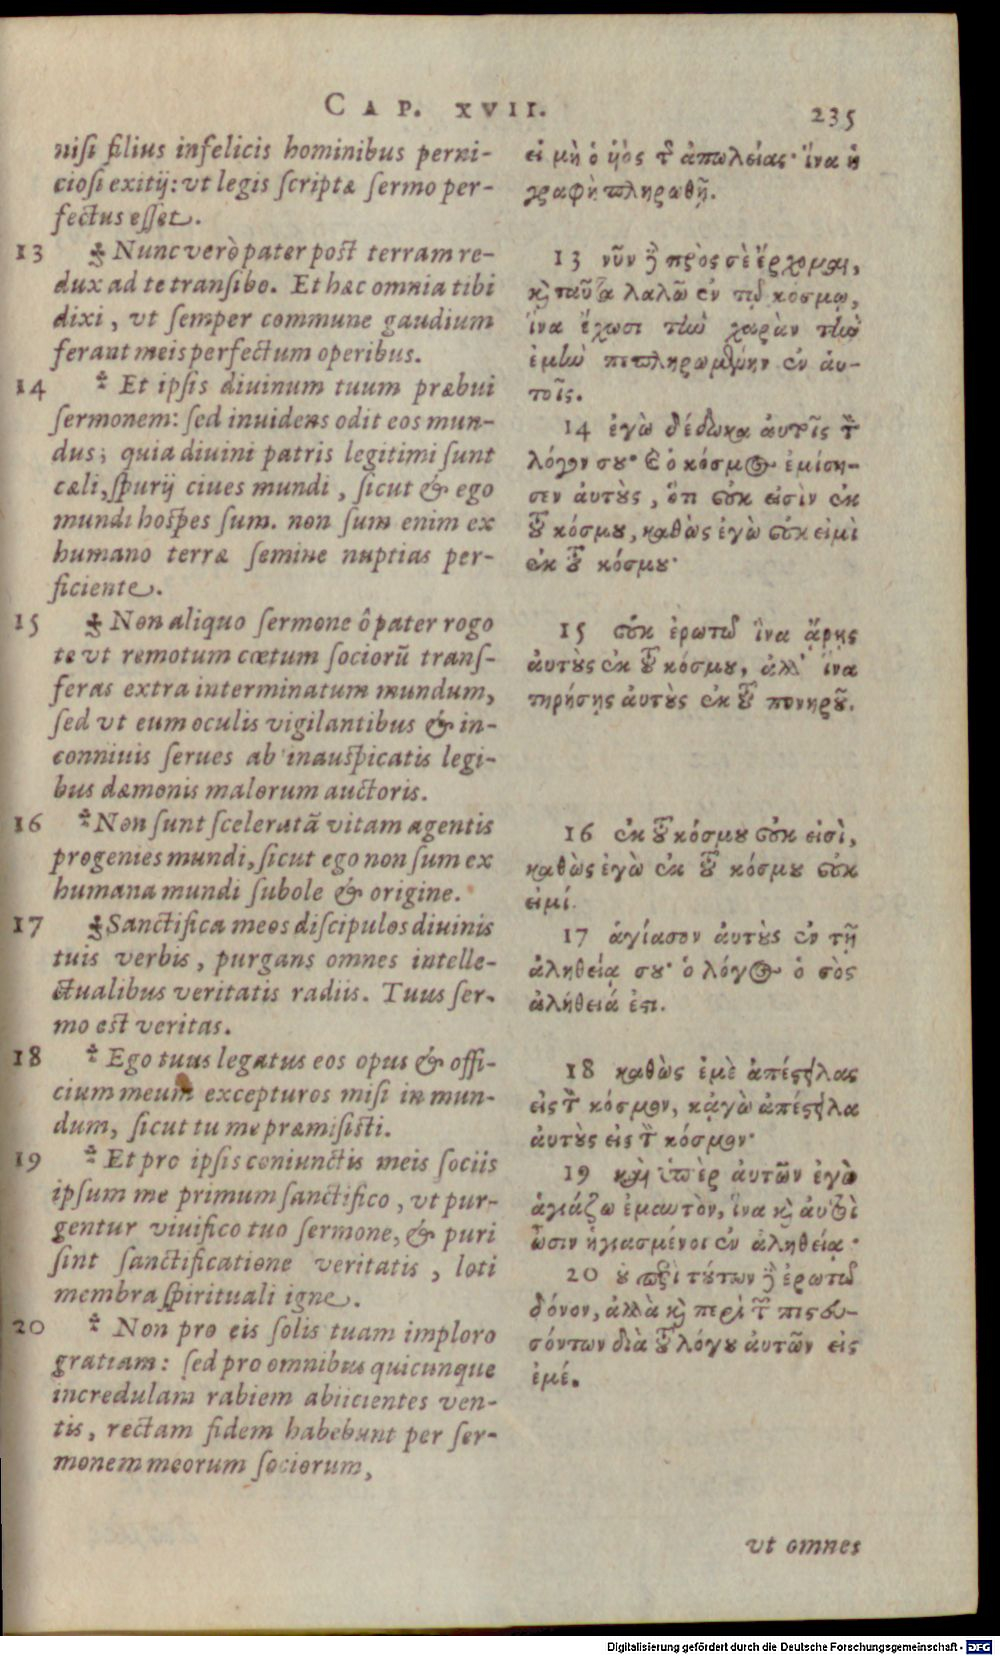 CAP. XVII.
235
niſi filius infelicis hominibus perni-
cioſi exitij: vt legis ſcriptæ ſermo per-
fectus eſſet.
13 Nunc verò pater post terram re-
dux ad te tranſibo. Et hæc omnia tibi
dixi, vt ſemper commune gaudium
ferant meis perfectum operibus.
14 Et ipſis diuinum tuum præbui
ſermonem: ſed inuidens odit eos mun-
dus; quia diuini patris legitimi ſunt
cæli, ſpurij ciues mundi, ſicut & ego
mundi hoſpes ſum. non ſum enim ex
humano terræ ſemine nuptias per-
ficiente.
15 Non aliquo ſermone ô pater rogo
te vt remotum cœtum ſociorũ tranſ-
feras extra interminatum mundum,
ſed vt eum oculis vigilantibus & in-
conniuis ſerues ab inauſpicatis legi-
bus dæmonis malorum auctoris.
16 Non ſunt ſceleratã vitam agentis
progenies mundi, ſicut ego non ſum ex
humana mundi ſubole & origine.
17 Sanctifica meos diſcipulos diuinis
tuis verbis, purgans omnes intelle-
ctualibus veritatis radiis. Tuus ſer-
mo est veritas.
18 Ego tuus legatus eos opus & offi-
cium meum excepturos miſi in mun-
dum, ſicut tu me præmiſisti.
19 Et pro ipſis coniunctis meis ſociis
ipſum me primum ſanctifico, vt pur-
gentur viuifico tuo ſermone, & puri
ſint ſanctificatione veritatis, loti
membra ſpirituali igne.
20 Non pro eis ſolis tuam imploro
gratiam: ſed pro omnibus quicunque
incredulam rabiem abiicientes ven-
tis, rectam fidem habebunt per ſer-
monem meorum ſociorum,
εἰ μὴ ὁ ἡὸς τῆς ἀπωλείας· ἵνα ἡ
γραφὴ πληρωθῇ.
13 νῦν δὲ πρὸς σὲ ἔρχομαι,
καὶ ταῦτα λαλῶ ἐν τῷ κόσμῳ,
ἵνα ἔχωσι τὴν χαρὰν τὴν
ἐμὴν πεπληρωμένην ἐν αὐ-
τοῖς.
14 ἐγὼ δέδωκα αὐτοῖς τὸν
λόγον σου· καὶ ὁ κόσμος ἐμίση-
σεν αὐτοὺς, ὅτι οὐκ εἰσὶν ἐκ
τοῦ κόσμου, καθὼς ἐγὼ οὐκ εἰμὶ
ἐκ τοῦ κόσμου·
15 οὐκ ἐρωτῶ ἵνα ἄρῃς
αὐτοὺς ἐκ τοῦ κόσμου, ἀλλ' ἵνα
τηρήσῃς αὐτοὺς ἐκ τοῦ πονηροῦ.
16 ἐκ τοῦ κόσμου οὐκ εἰσὶ,
καθὼς ἐγὼ ἐκ τοῦ κόσμου οὐκ
εἰμί.
17 ἁγίασον αὐτοὺς ἐν τῇ
ἀληθείᾳ σου· ὁ λόγος ὁ σὸς
ἀλήθειά ἐστι.
18 καθὼς ἐμὲ ἀπέστειλας
εἰς τὸν κόσμον, κᾀγὼ ἀπέστειλα
αὐτοὺς εἰς τὸν κόσμον·
19 καὶ ὑπὲρ αὐτῶν ἐγὼ
ἁγιάζω ἐμαυτὸν, ἵνα καὶ αὐτοὶ
ὦσιν ἡγιασμένοι ἐν ἀληθείᾳ·
20 οὐ περὶ τούτων δὲ ἐρωτῶ
δόνον, ἀλλὰ καὶ περὶ τῶν πιστευ-
σόντων διὰ τοῦ λόγου αὐτῶν εἰς
ἐμέ.
vt omnes
Digitalisierung gefördert durch die Deutsche Forschungsgemeinschaft - DFG